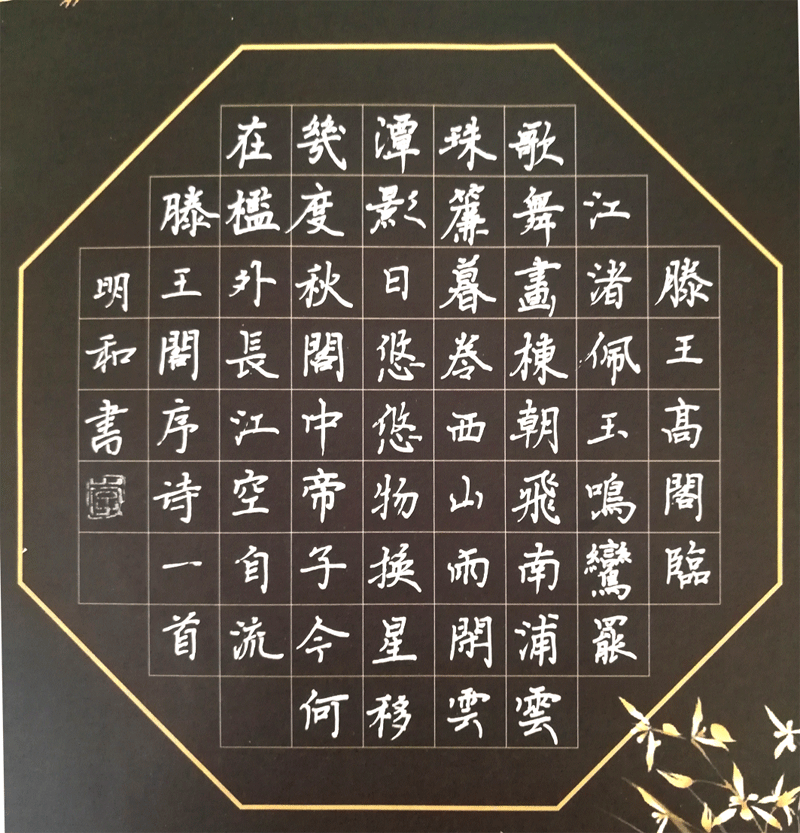 滕王高閣臨
江渚佩玉鳴鸞罷
歌舞畫棟朝飛南浦雲
珠簾暮卷西山雨閑雲
潭影日悠悠物換星移
幾度秋閣中帝子今何
在檻外長江空自流
滕王閣序诗一首
明和書